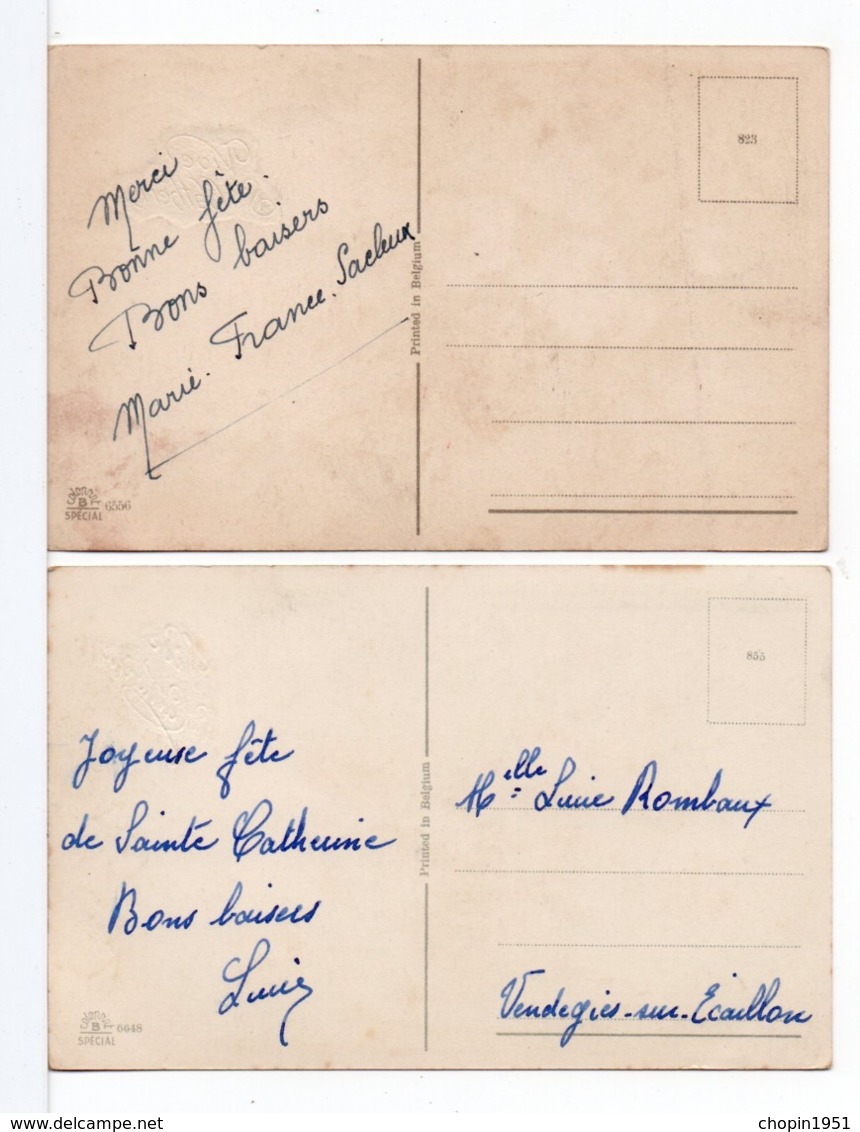 Merci
Bonne fête.
Bons baisers
Marie-France. Sacleux
Printed in Belgium
823
B
SPÉCIAL
6556
Joyeuse fête
de Sainte Catherine
Bons baisers
Lucie
Printed in Belgium
855
Melle Lucie Rombaux
Vendegies-sur-Ecaillon
B
SPÉCIAL
6648
delcampe.net
chopin1951